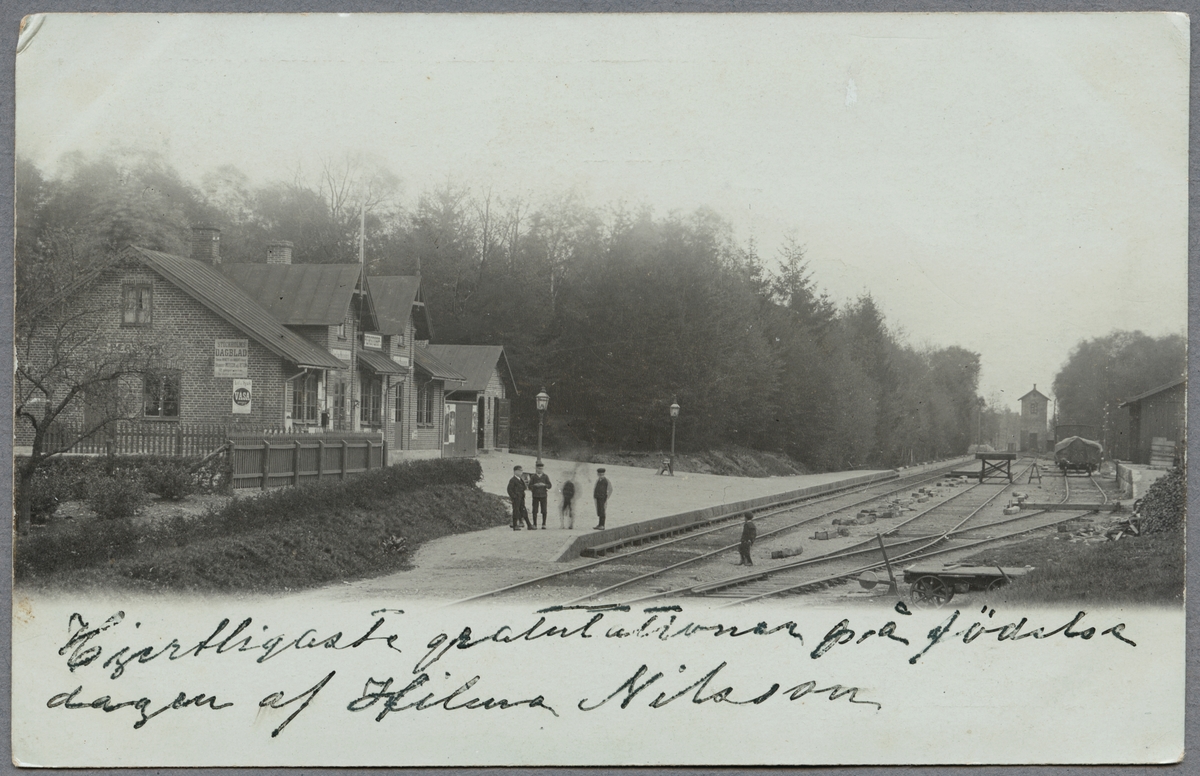 DAGBLAD
VASA
Hjertligaste gratulationer på födelse
dagen af Hilma Nilsson